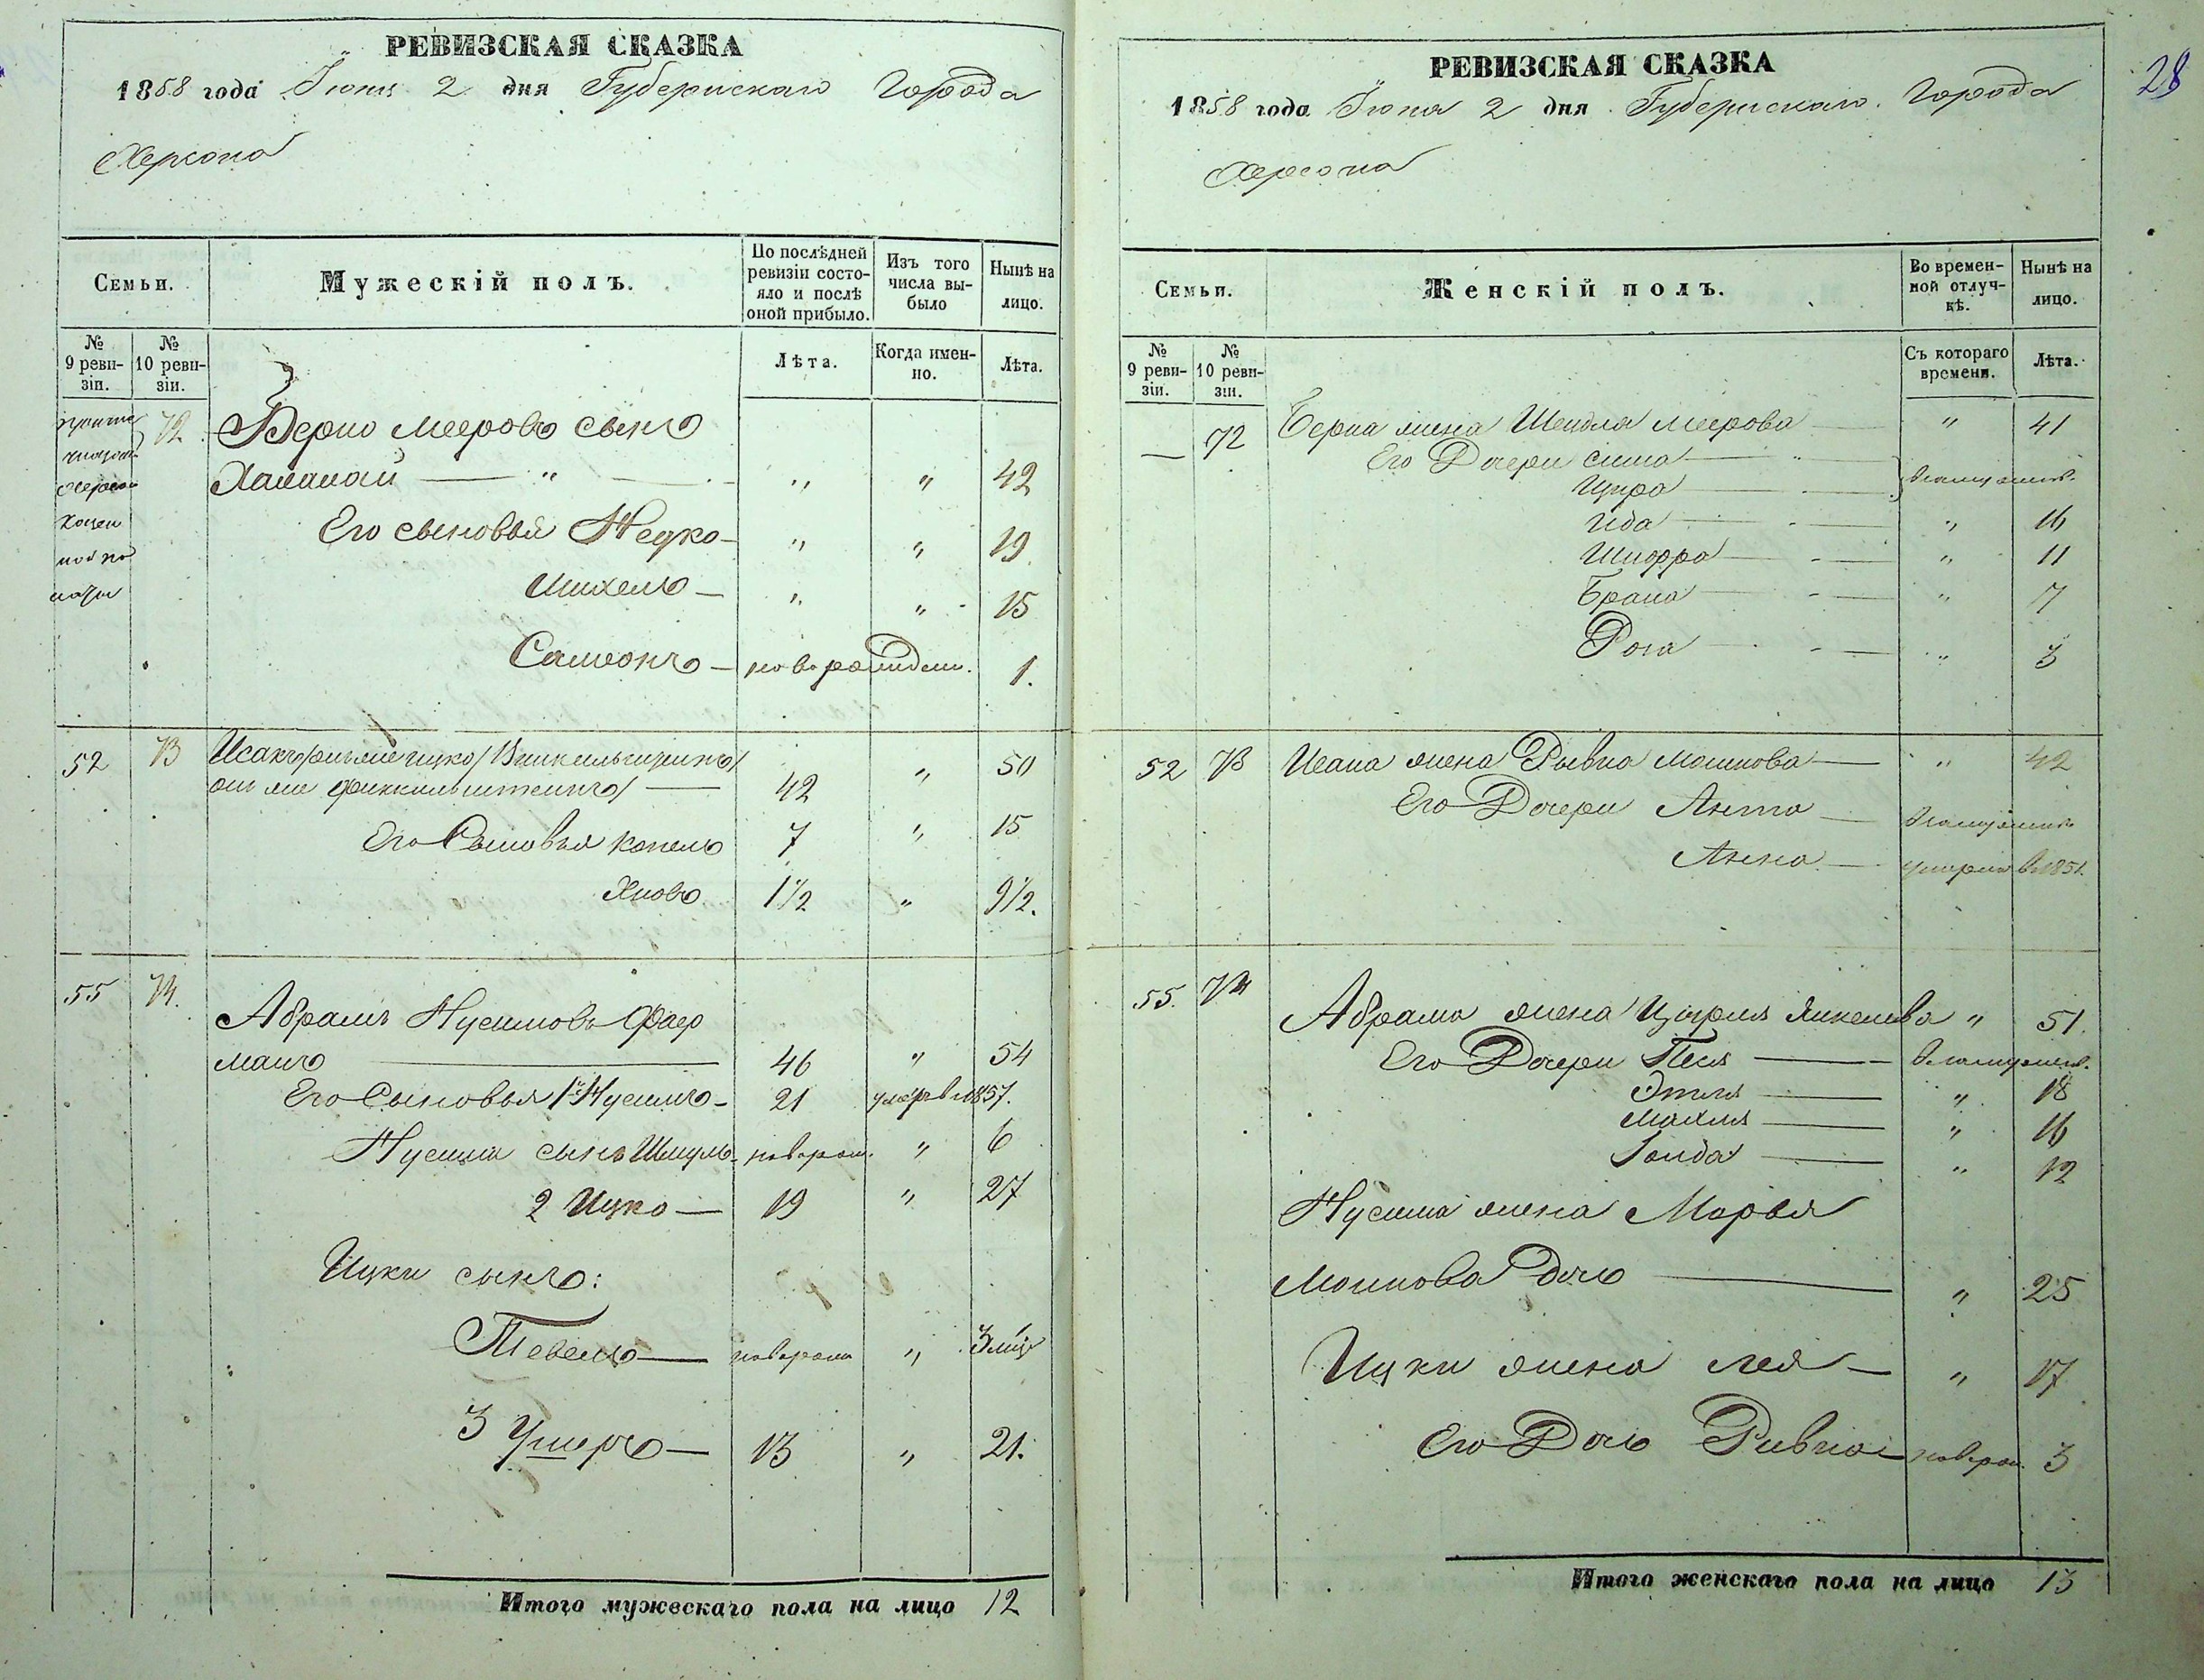 РЕВИЗСКАЯ СКАЗКА
1858 года Июня 2 дня Губернскаго Города
Херсона
Семьи.
Мужескій полъ.
По послѣдней ревизіи состояло и послѣ оной прибыло.
Изъ того числа выбыло
Нынѣ на лицо.
№ 9 ревизіи.
№ 10 ревизіи.
Лѣта.
Когда именно.
Лѣта.
72 Берко Мееровъ сынъ
— " — " " 42
Его сыновья — " " 19
— " " 15
Самсонъ — новорожден. 1.
52 73
или — 42 " 50
Его Сыновья Копель 7 " 15
Яковъ 1½ " 9½.
55 74.
Абрамъ Нусимовъ Фаер
манъ — 46 " 54
Его Сыновья 1й Нусимъ — 21 умеръ в 1857.
Нусима сынъ Шмуль — новорож. " 6
2 Ицко — 19 " 27
Ицки сынъ:
Тевель — новорож " 3 мц
3 Ушеръ — 13 " 21.
Итого мужескаго пола на лицо 12
28
РЕВИЗСКАЯ СКАЗКА
1858 года Июня 2 дня Губернскаго Города
Херсона
Семьи.
Женскій полъ.
Во временной отлучкѣ.
Нынѣ на лицо.
№ 9 ревизіи.
№ 10 ревизіи.
Съ котораго времени.
Лѣта.
— 72 Берка жена Шендля Меерова — " 41
Его Дочери Сима —
Цира — } взамужест.
Ида — " 16
Шифра — " 11
Брана — " 7
— " 3
52 73 Исака жена Рывка Мошкова — " 42
Его Дочери — взамужест
Анна — умерла в 1851.
55. 74
Абрама жена Ципря Янкелева " 51.
Его Дочери Песя — взамужест.
Этля — " 18
Махля — " 16
— " 12
Нусима жена Марья
Мошкова дочь — " 25
Ицки жена Лея — " 17
Его Дочь Ривка — новорож. 3
Итого женскаго пола на лицо 13